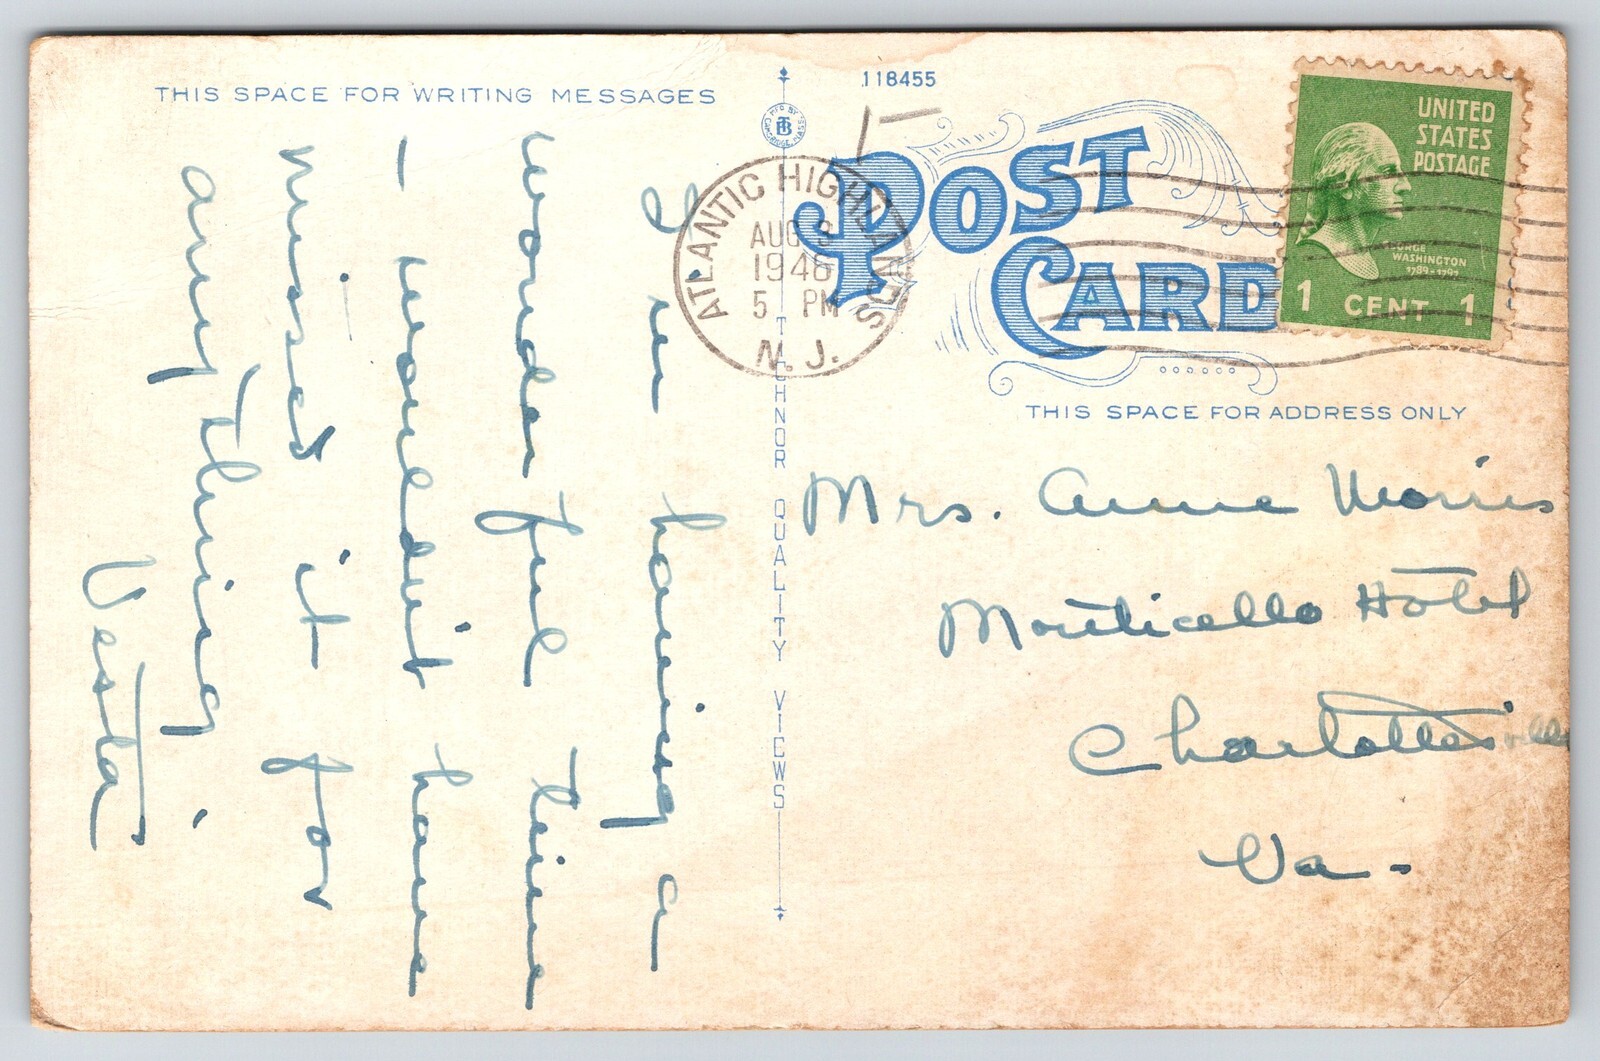 THIS SPACE FOR WRITING MESSAGES
I'm having a
wonderful time
— wouldn't have
missed it for
any thing.
Vesta
118455
MFG BY
TB
CAMBRIDGE, MASS
TICHNOR QUALITY VIEWS
POST
CARD
ATLANTIC HIGHLANDS
AUG 3
1946
5 PM
N. J.
UNITED
STATES
POSTAGE
GEORGE
WASHINGTON
1789-1797
1 CENT 1
THIS SPACE FOR ADDRESS ONLY
Mrs. Anne Morris
Monticello Hotel
Charlottesville
Va -